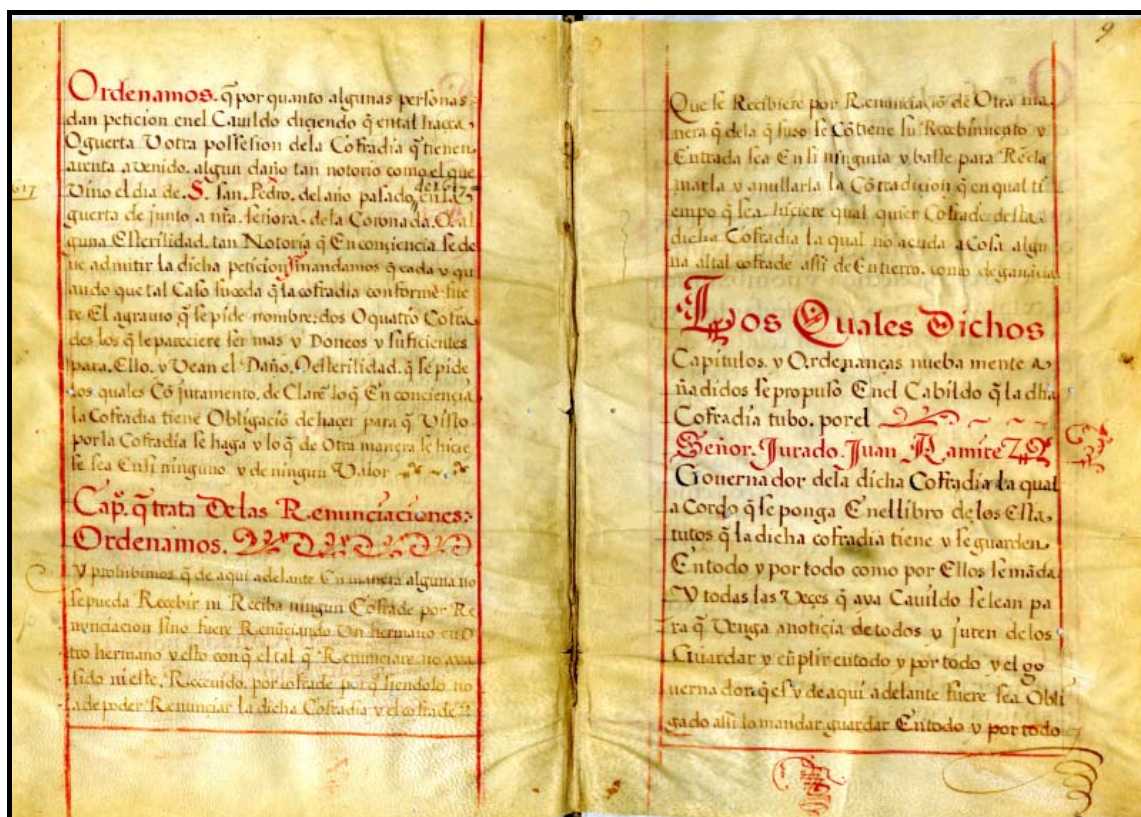 Ordenamos. q̃ por quanto algunas personas
dan peticion enel Cauildo diçiendo q̃ en tal haçça.
O guerta V otra possesion dela Cofradia q̃ tienen
arenta a venido. algun daño tan notorio como el que
617
Vino el dia de. S. san. Pedro. del año pasado en la
guerta de junto a nr̃a. señora. de la Coronada. O al
guna Esterilidad. tan Notoria q̃ En conçiencia se de
ue admitir la dicha peticion mandamos q̃ cada y qu
ando que tal Caso suçeda q̃ la cofradia conforme fue
re El agrauio q̃ se pide nombre: dos O quatro Cofra
des los q̃ le pareciere ser mas y Doneos y sufiçientes
para. Ello. y Vean el Daño. O esterilidad. q̃ se pide
los quales Cõ juramento. de Clarẽ lo q̃ En conciencia
la Cofradia tiene Obligaciõ de haçer para q̃ Visto
por la Cofradia se haga y lo q̃ de Otra manera se hiçie
se sea Ensi ninguno y de ningun Valor
Cap̃. q̃ trata De las Renunçiaçiones:
Ordenamos.
y prohibimos q̃ de aqui adelante En manera alguna no
se pueda Reçebir ni Reçiba ningun Cofrade por Re
nunciacion sino fuere Renũçiando Vn hermano en O
tro hermano y esto con q̃ el tal q̃ Renunciare no aya
sido ni este. Reçeuido. por cofrade porq̃ siendolo no
a de poder Renunçiar la dicha Cofradia y el cofrade
9
Que se Reçibiere por Renunçiaçiõ de Otra ma
nera q̃ dela q̃ suso se Cõtiene su Reçebimiento y
Entrada sea En si ninguna y baste para Recla
marla y anullarla la Cõtradicion q̃ en qual ti
empo q̃ sea. hiçiere qual quier Cofrade desta
dicha Cofradia la qual no acuda a Cosa algu
na al tal cofrade assi de Entierro. como de ganançia
Los Quales Dichos
Capitulos. y Ordenanças nueba mente a
ñadidos se propuso Enel Cabildo q̃ la dh̃a
Cofradia tubo. por el
Señor. Jurado. Juan Ramirez
Governador dela dicha Cofradia la qual
a Cordo q̃ se ponga Enel libro de los Esta
tutos q̃ la dicha cofradia tiene y se guarden
En todo y por todo como por Ellos se mãda
Y todas las Veçes q̃ aya Cauildo se lean pa
ra q̃ Venga anoticia de todos y juren de los
Guardar y cũplir en todo y por todo y el go
uernador. q̃ es y de aqui adelante fuere sea Obli
gado assi lo mandar guardar En todo y por todo